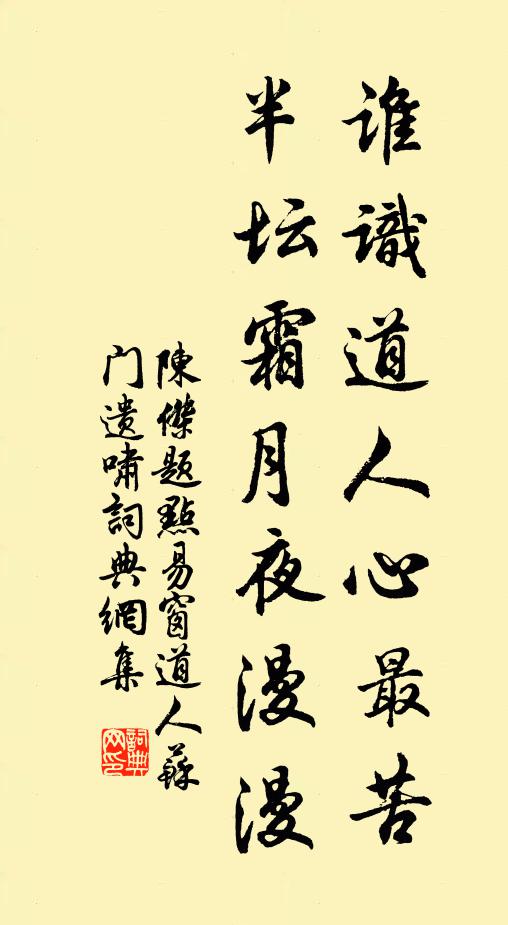 誰識道人心最苦
半坛霜月夜漫漫
陳傑题點易窗道人蘇
门遗嘯詞典網集
詞典网印